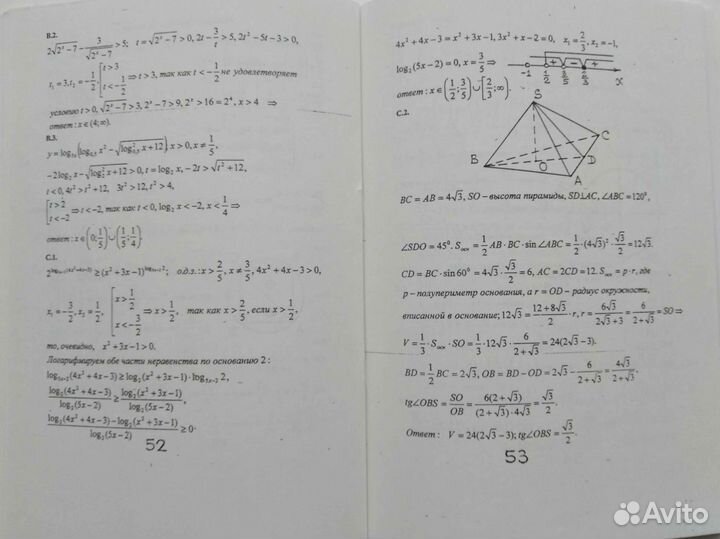 В.2.
2√(2ˣ−7) − 3/√(2ˣ−7) > 5; t = √(2ˣ−7) > 0, 2t − 3/t > 5, 2t² − 5t − 3 > 0,
t₁ = 3, t₂ = −1/2, [t > 3; t < −1/2 ⇒ t > 3, так как t < −1/2 не удовлетворяет
условию t > 0, √(2ˣ−7) > 3, 2ˣ − 7 > 9, 2ˣ > 16 = 2⁴, x > 4 ⇒
ответ: x ∈ (4; ∞).
В.3.
y = log₅ₓ(log₀,₅ x² − √(log²₀,₅ x + 12)) x > 0, x ≠ 1/5,
−2log₂ x − √(log₂² x + 12) > 0, t = log₂ x, −2t > √(t² + 12),
t < 0, 4t² > t² + 12, 3t² > 12, t² > 4,
[t > 2; t < −2 ⇒ t < −2, так как t < 0, log₂ x < −2, x < 1/4 ⇒
ответ: x ∈ (0; 1/5) ∪ (1/5; 1/4)
С.1.
о.д.з.: x > 2/5, x ≠ 3/5, 4x² + 4x − 3 > 0,
x₁ = −3/2, x₂ = 1/2, [x > 1/2; x < −3/2 ⇒ x > 1/2, так как x > 2/5, если x > 1/2,
то, очевидно, x² + 3x − 1 > 0.
Логарифмируем обе части неравенства по основанию 2:
log₅ₓ₋₂(4x² + 4x − 3) ≥ log₂(x² + 3x − 1) · log₅ₓ₋₂ 2,
log₂(4x² + 4x − 3)/log₂(5x − 2) ≥ log₂(x² + 3x − 1)/log₂(5x − 2),
(log₂(4x² + 4x − 3) − log₂(x² + 3x − 1))/log₂(5x − 2) ≥ 0.
52
4x² + 4x − 3 = x² + 3x − 1, 3x² + x − 2 = 0, x₁ = 2/3, x₂ = −1,
log₂(5x − 2) = 0, x = 3/5
+ − +
−1 1/2 3/5 2/3 x
ответ: x ∈ (1/2; 3/5) ∪ [2/3; ∞).
С.2.
S
C
B
D
O
A
BC = AB = 4√3, SO – высота пирамиды, SD⊥AC, ∠ABC = 120⁰,
∠SDO = 45⁰. Sосн = 1/2 AB · BC · sin∠ABC = 1/2 · (4√3)² · √3/2 = 12√3.
CD = BC · sin 60⁰ = 4√3 · √3/2 = 6, AC = 2CD = 12. Sосн = p · r, где
p – полупериметр основания, а r = OD – радиус окружности,
вписанной в основание; 12√3 = (12 + 8√3)/2 · r, r = 6√3/(2√3 + 3) = 6/(2 + √3) = SO ⇒
V = 1/3 · Sосн · SO = 1/3 · 12√3 · 6/(2 + √3) = 24(2√3 − 3).
BD = 1/2 BC = 2√3, OB = BD − OD = 2√3 − 6/(2 + √3) = 4√3/(2 + √3).
tg∠OBS = SO/OB = 6(2 + √3)/((2 + √3) · 4√3) = √3/2.
Ответ: V = 24(2√3 − 3); tg∠OBS = √3/2.
53
Avito